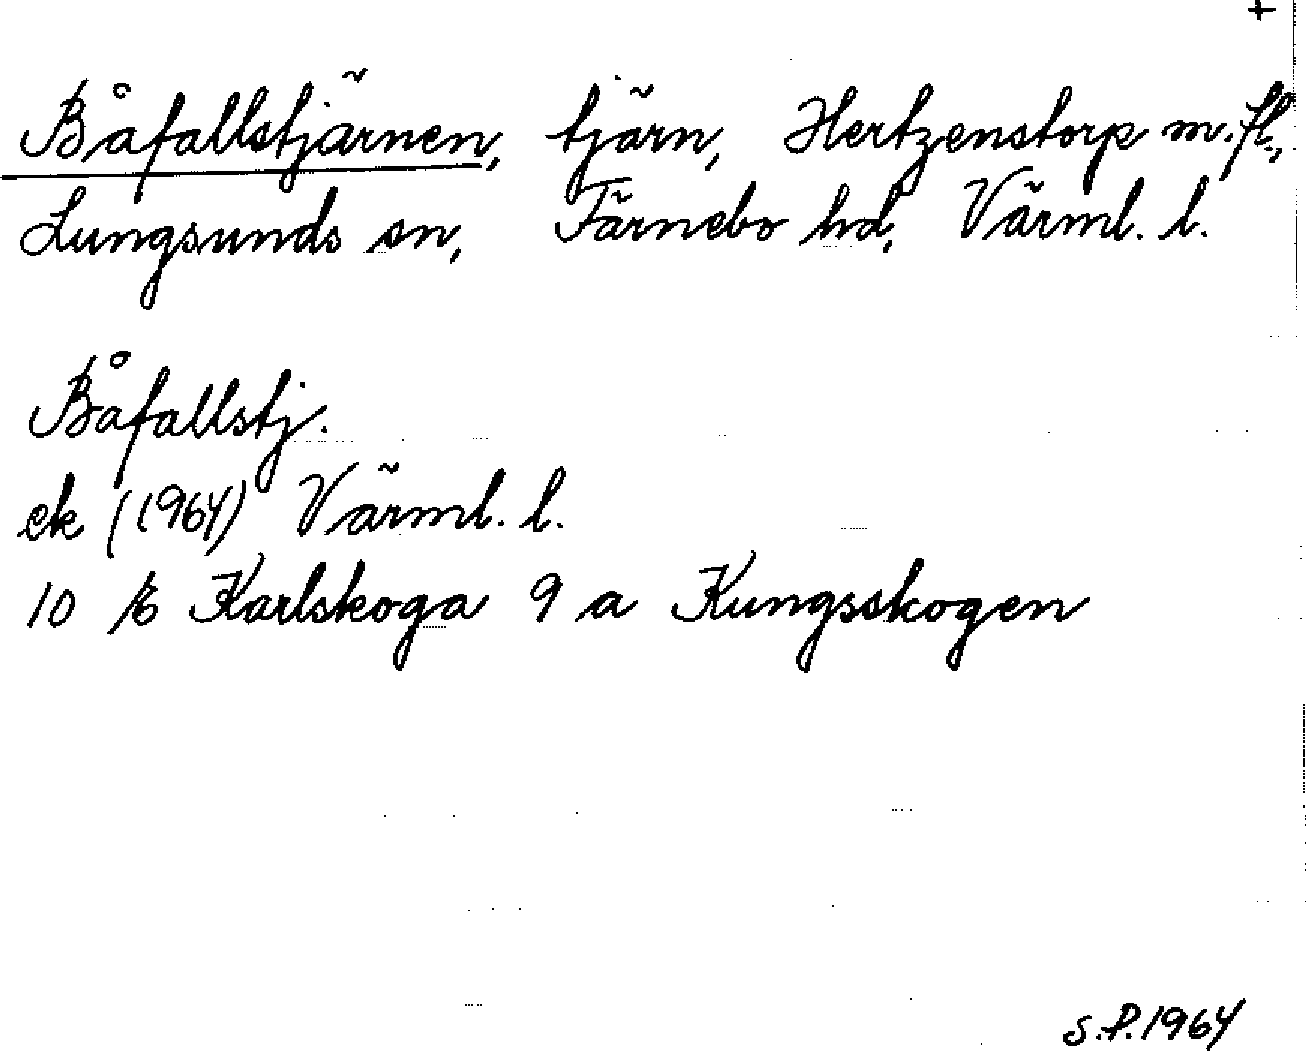 +
Båfallstjärnen, tjärn, Hertzenstorp m.fl.,
Lungsunds sn, Färnebo hd, Värml. l.
Båfallstj.
ek (1964) Värml. l.
10 E Karlskoga 9 a Kungsskogen
S.P. 1964